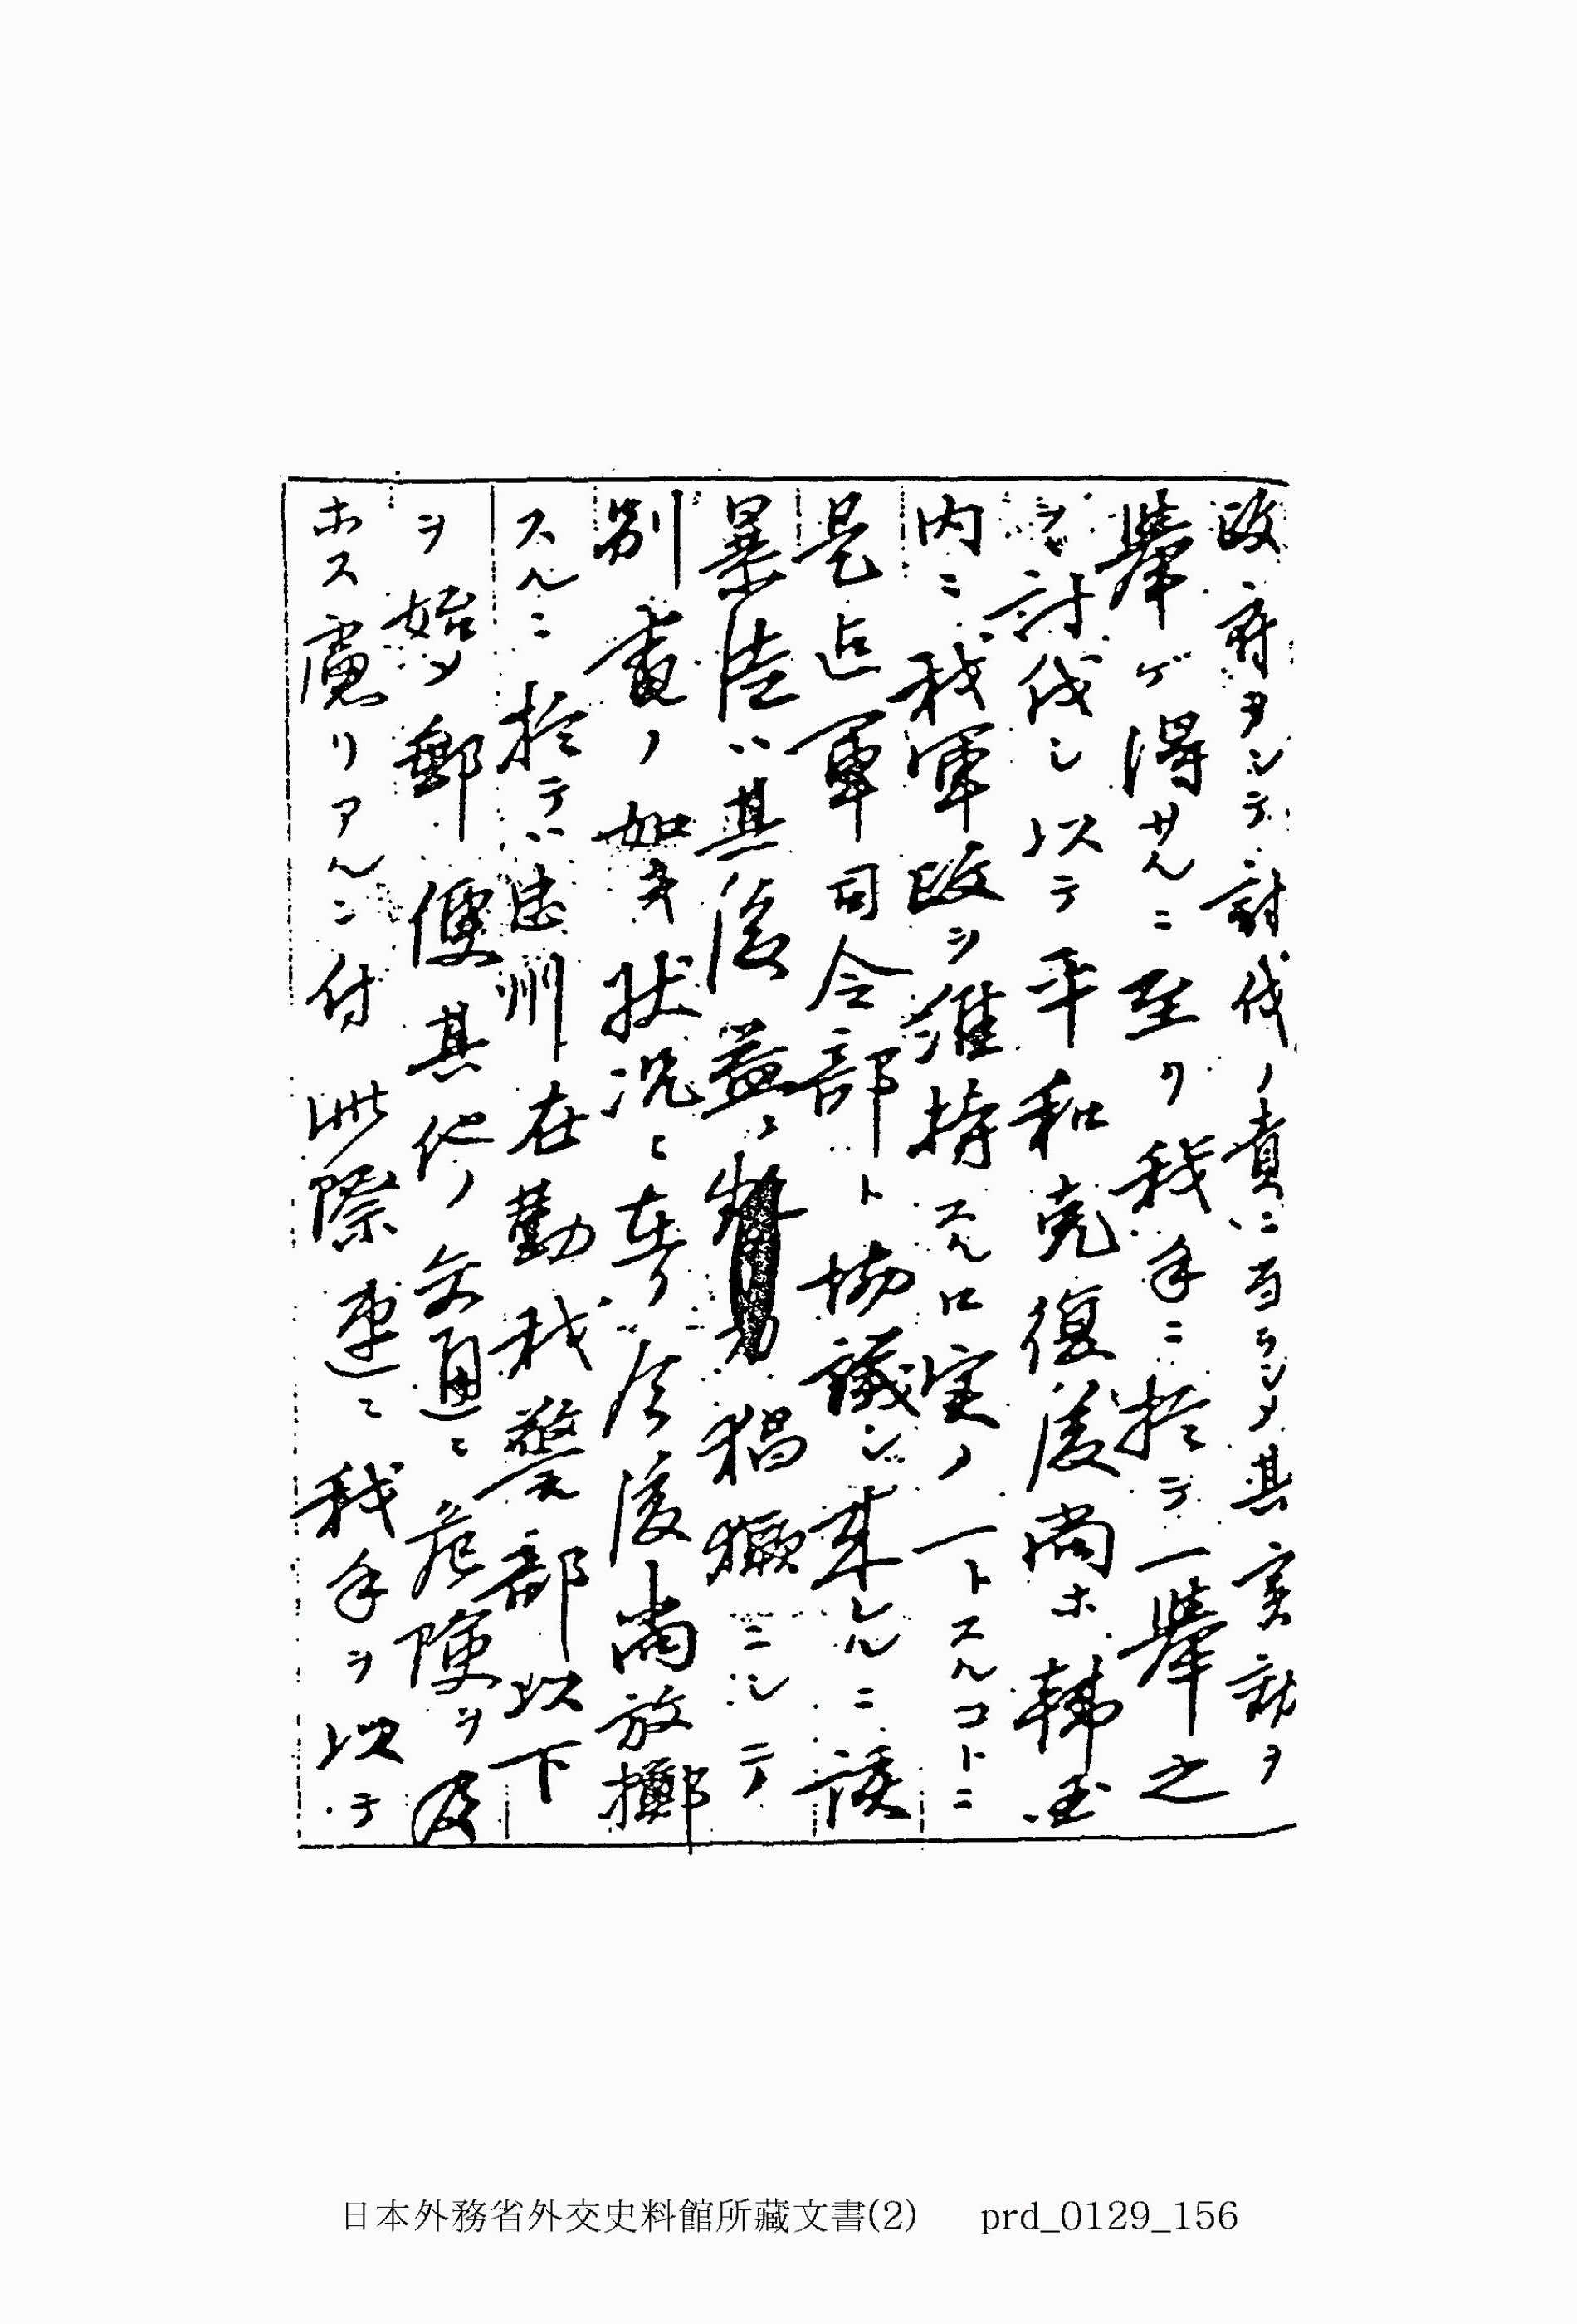 政府ヲシテ討伐ノ責ニ当ラシメ其実効ヲ
挙ゲ得サルニ至リ我手ニ於テ一挙之
ヲ討伐シ以テ平和克復後尚ホ韓国
内ニ我軍政ヲ維持スル口実ノ一トスルコトニ
是迄軍司令部ト協議シ来レルニ該
暴徒ハ其後益々 猖獗ニシテ
別書ノ如キ状況ニ在リ今後尚放擲
スルニ於テハ忠州在勤我警部以下
ヲ始メ郵便其他ノ交通ニ危険ヲ及
ホス虞リアルニ付此際速ニ我手ヲ以テ
日本外務省外交史料館所藏文書(2) prd_0129_156